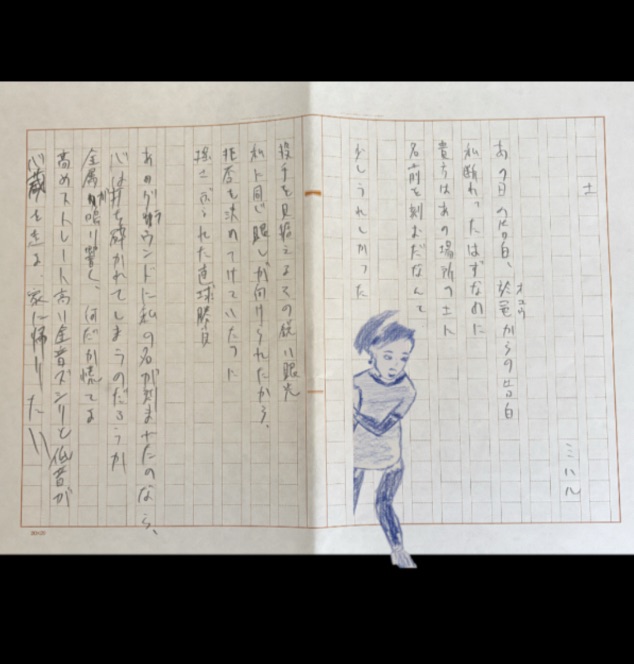 土
ミハル
あの日の告白、桜竜からの告白
オユウ
私断わったはずなのに
貴方はあの場所の土に
名前を刻むだなんて
少しうれしかった
投手を見据えるその鋭い眼光
私に同じ眼しか向けられたから、
拒否を決めつけていたのに
揺さぶられた直球勝負
あのグラウンドに私の名が刻まれたのなら、
心は打ち砕かれてしまうのだろうか
金属が鳴り響く、何だか慌てる
高めストレート高い金音ズシリと低音が
心臓をきる、家に帰りたい
20×20